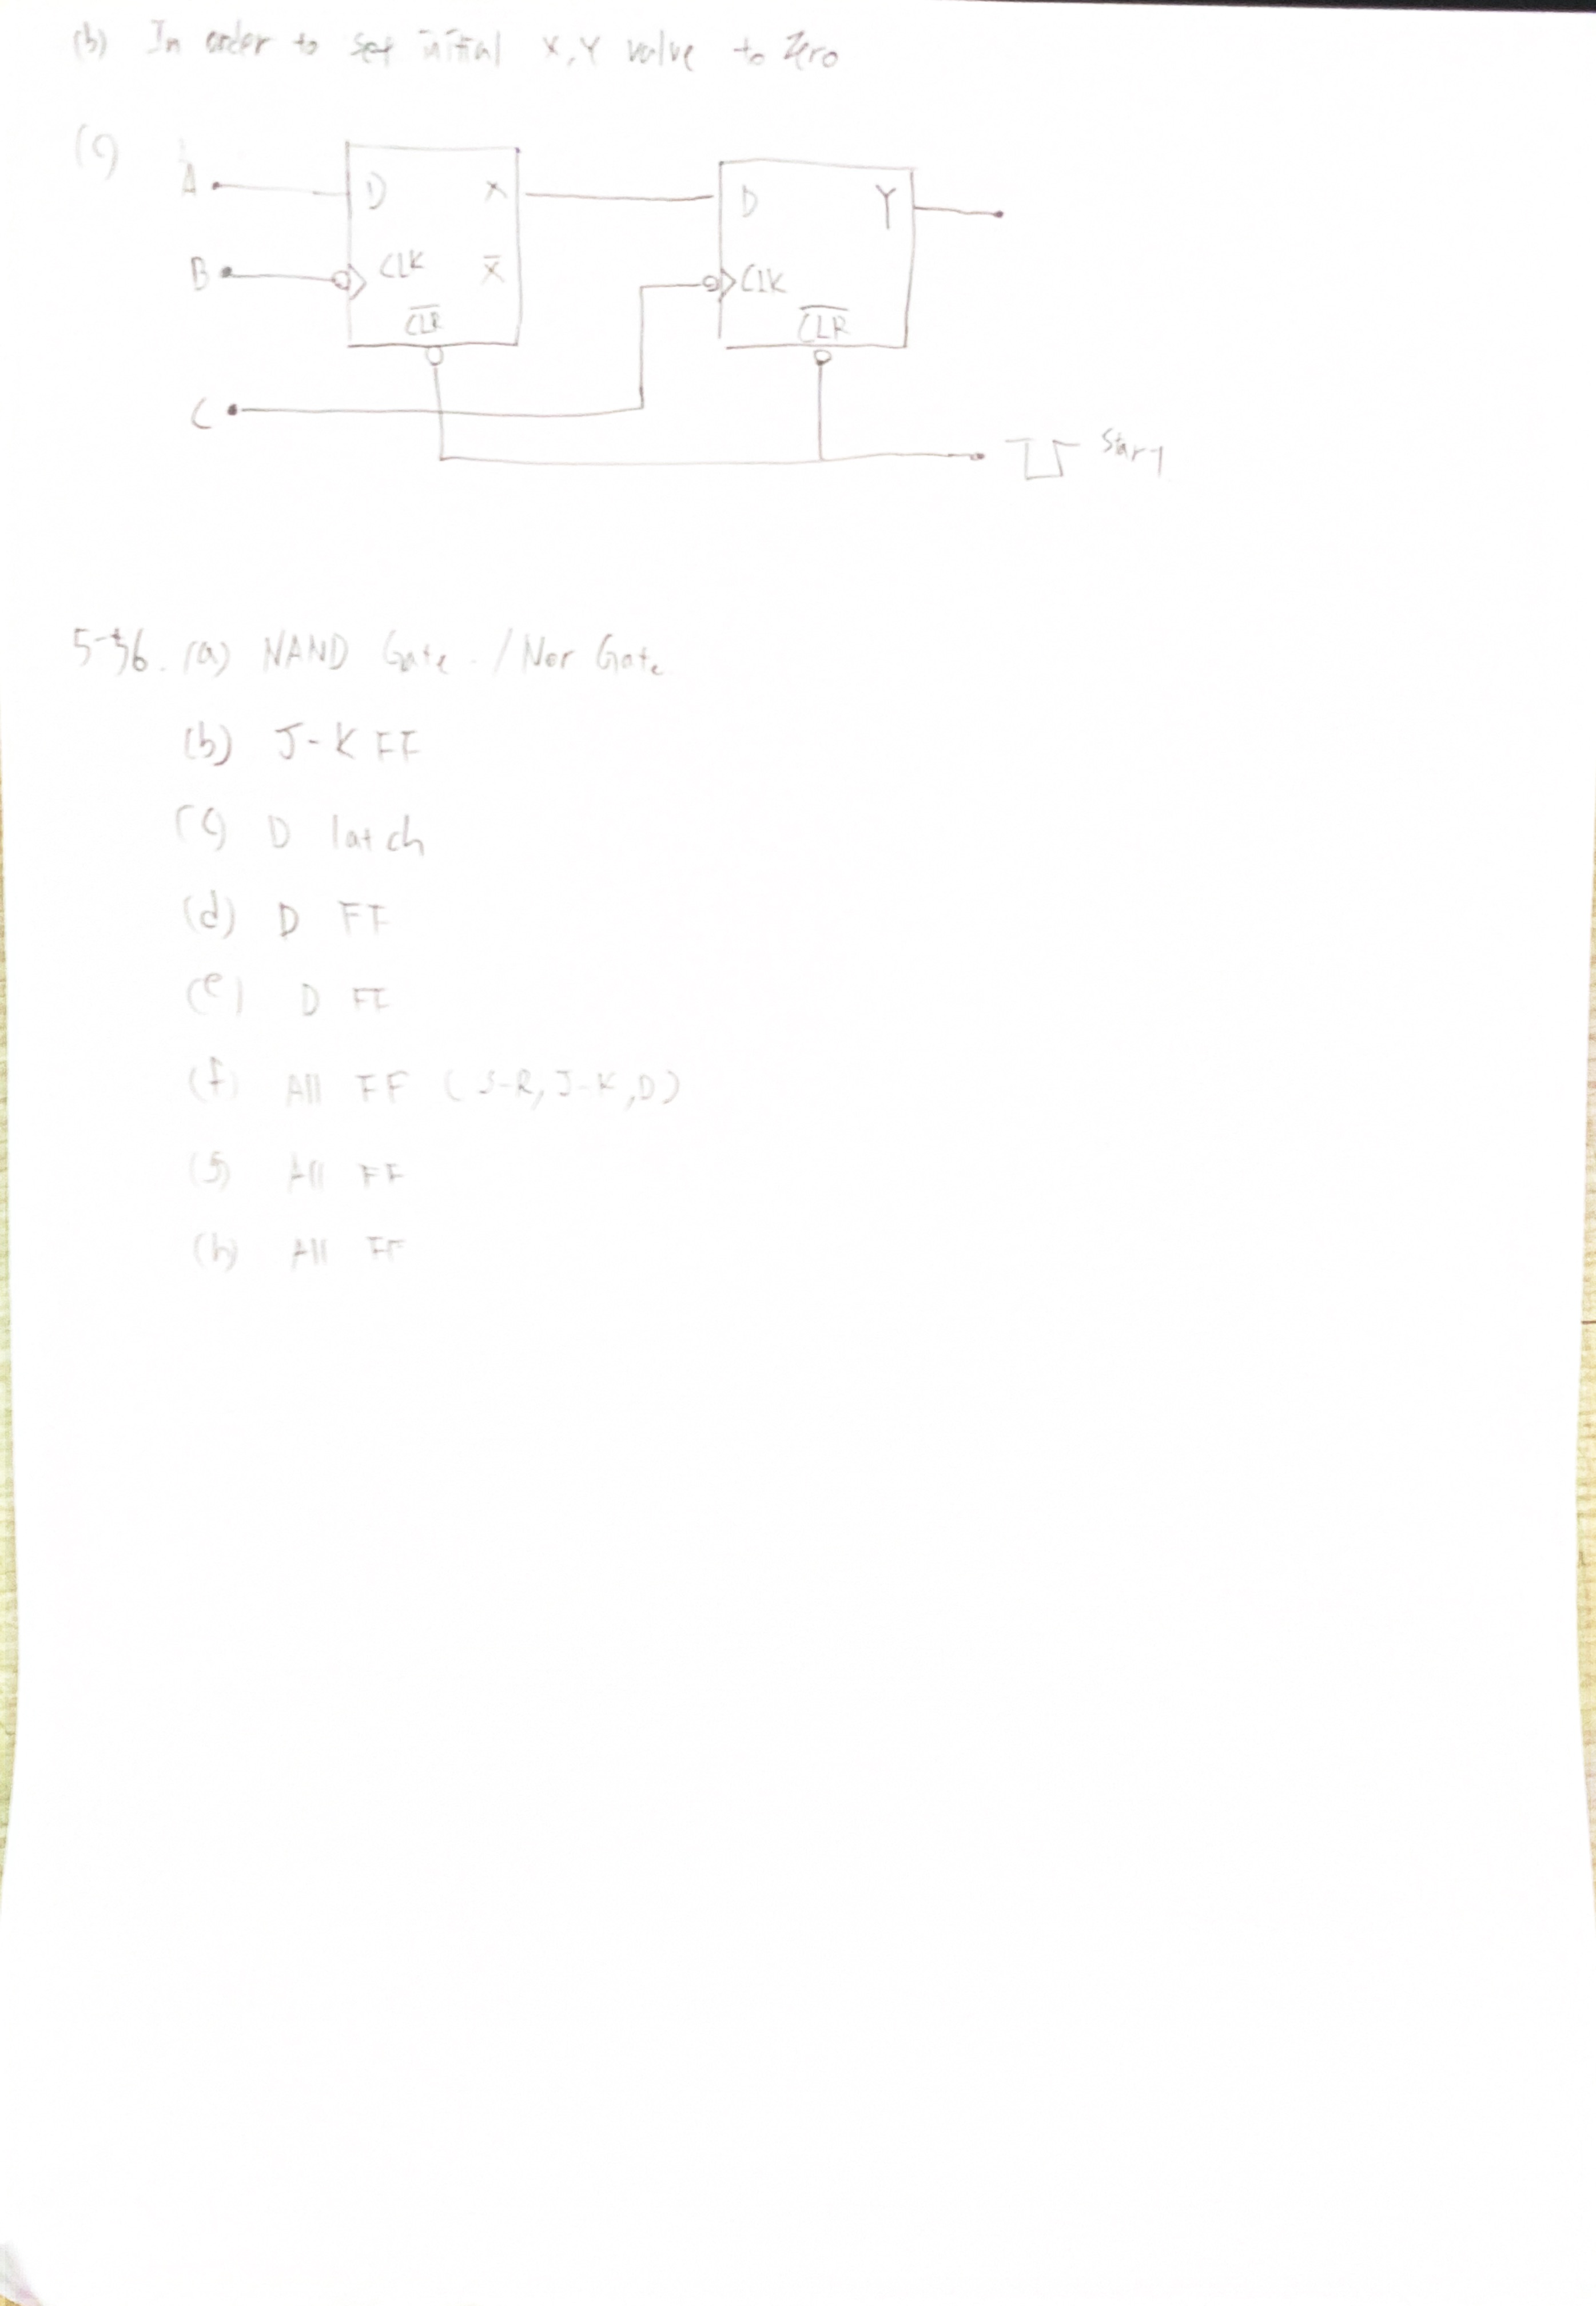 (b) In order to set initial X, Y value to zero
(c)
A D X D Y
B CLK X̅ CLK
C̅L̅R̅ C̅L̅R̅
C
Start
5-36. (a) NAND Gate. / Nor Gate
(b) J-K FF
(c) D latch
(d) D FF
(e) D FF
(f) All FF (S-R, J-K, D)
(g) All FF
(h) All FF